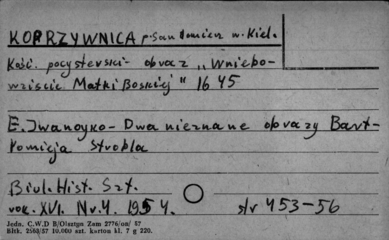 KOPRZYWNICA p-Sandomierz w. Kiel.
Kośc. pocysterski- obraz „Wniebo-
wzięcie Matki Boskiej" 1645
E. Iwanoyko- Dwa nieznane obrazy Bart-
łomieja Strobla
Biul. Hist. Szt.
rok. XVI. Nr. 4. 1954. str 453-56
Jedn. C.W.D B/Olsztyn Zam 2776/on/ 57
Bltk. 2568/57 10.000 szt. karton kl. 7 g 220.